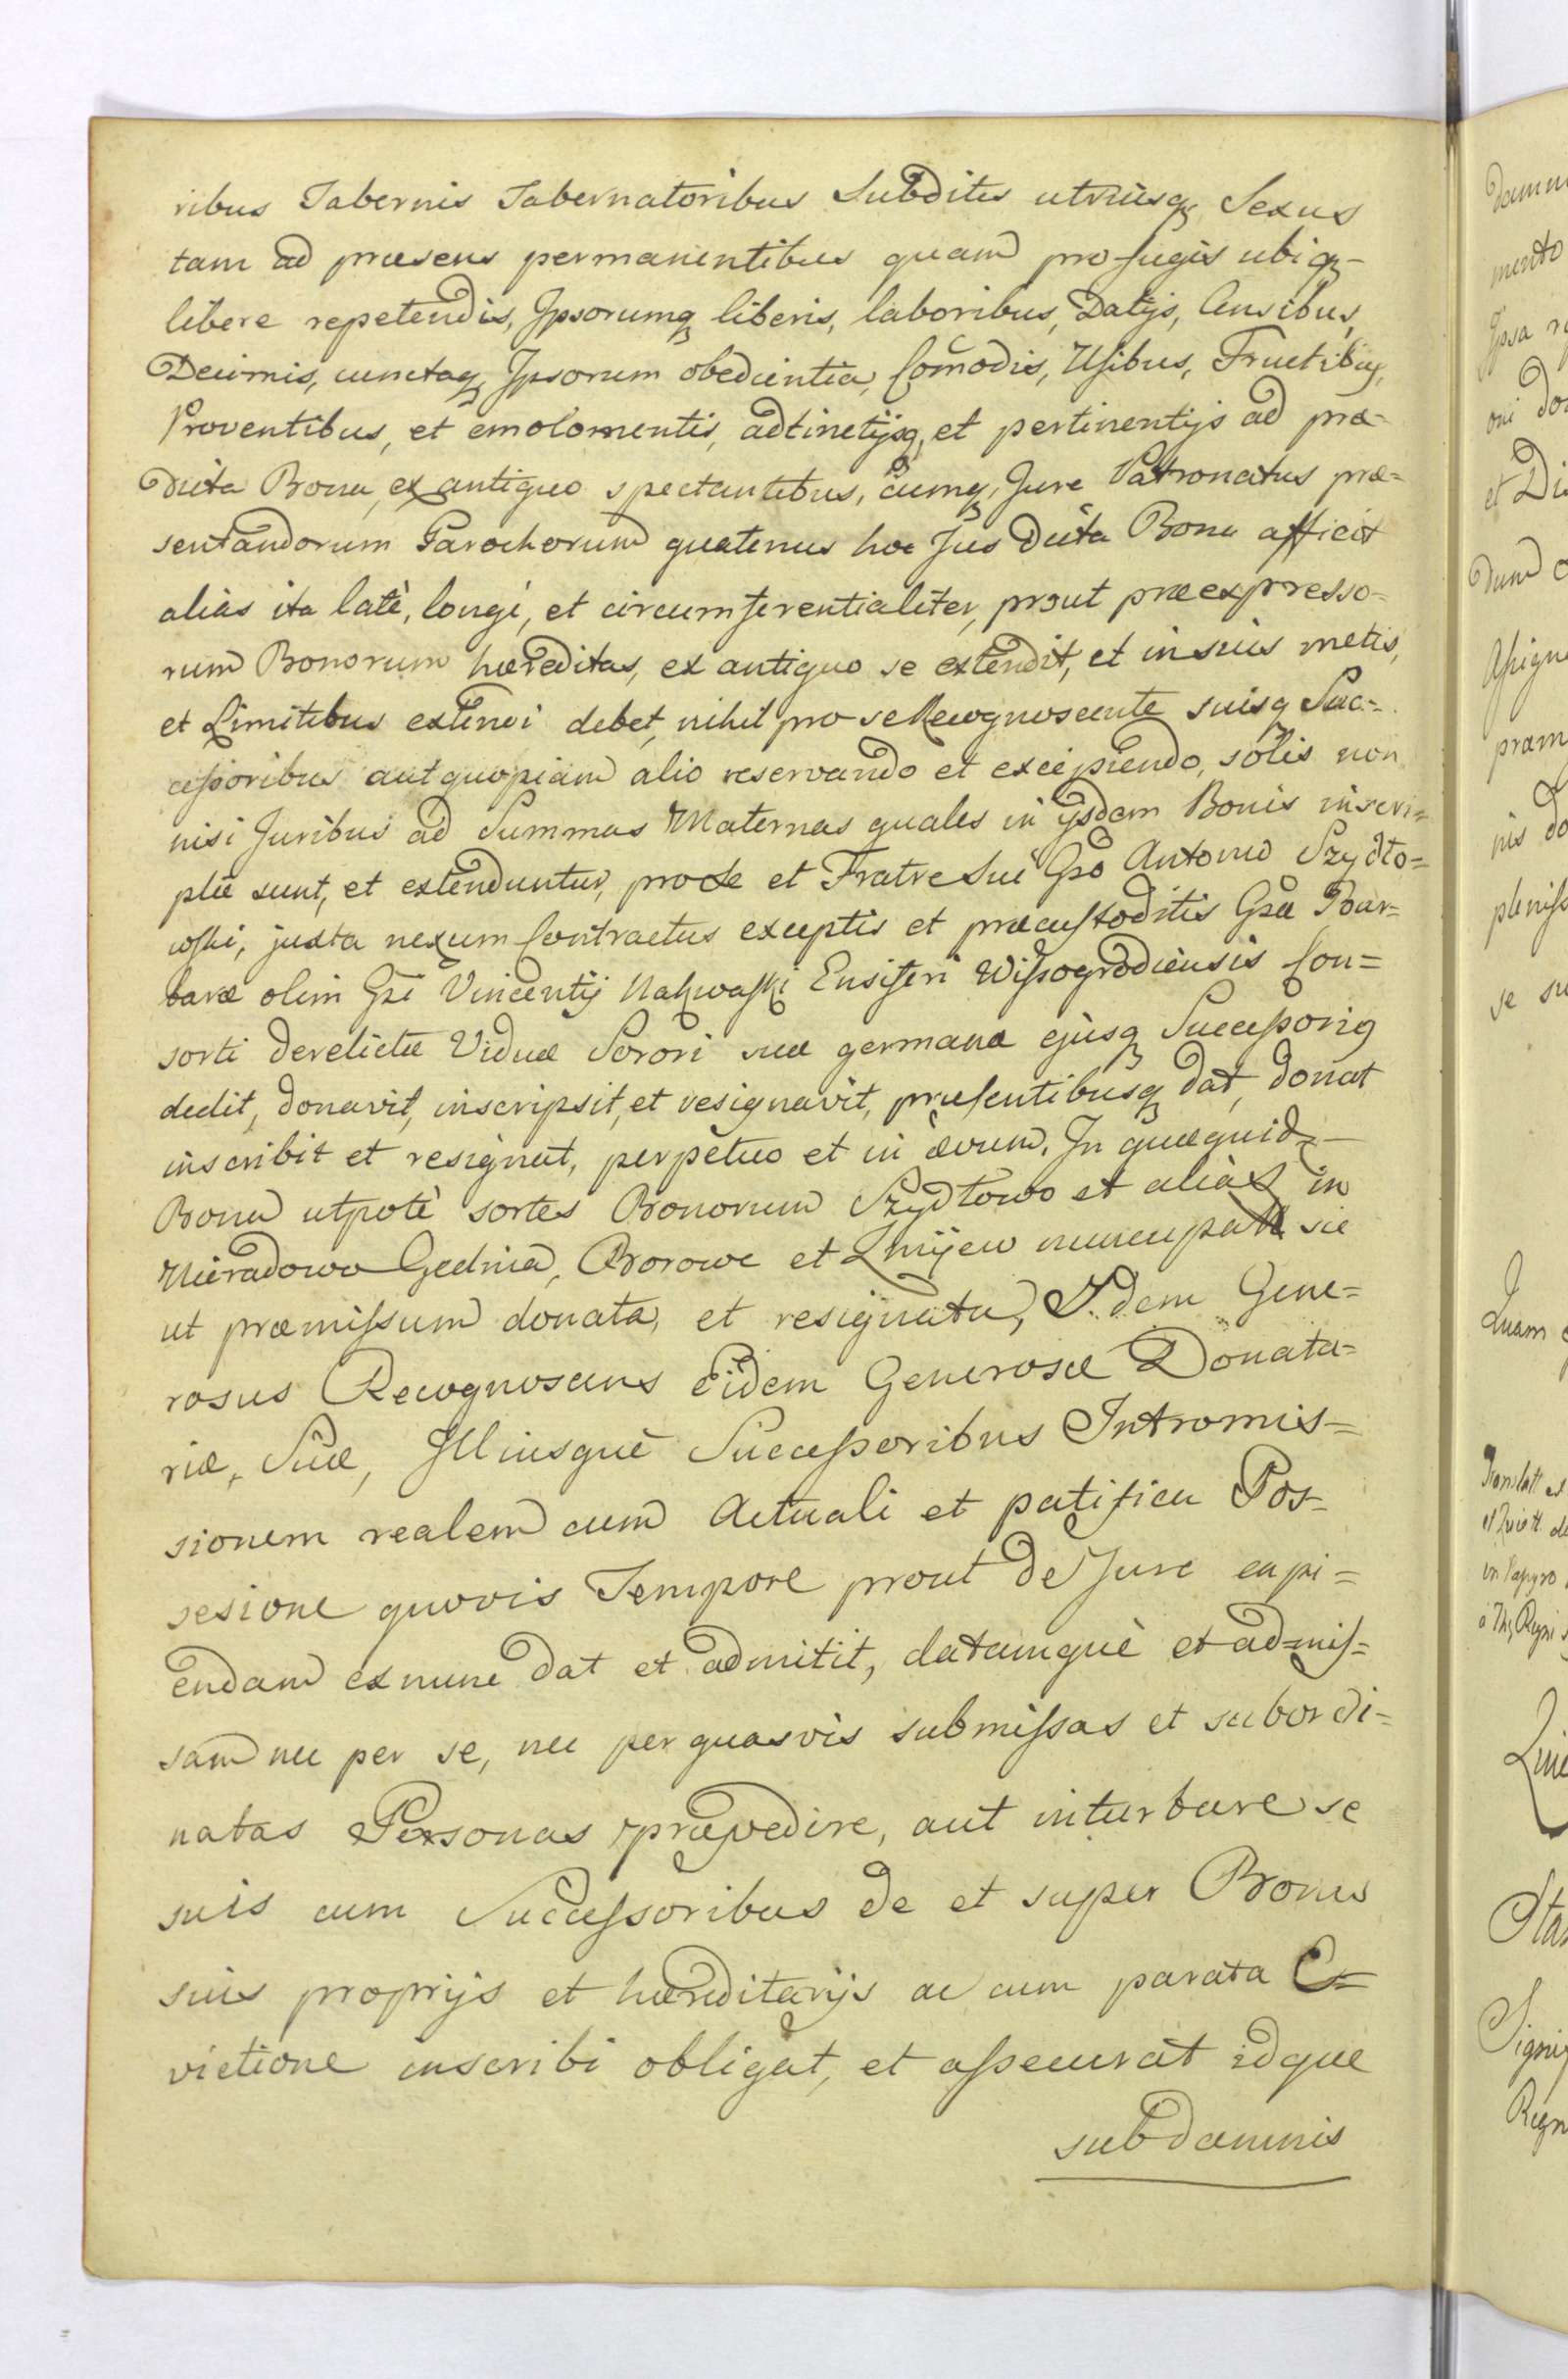 ribus Tabernis Tabernatoribus Subditis utriusq Sexus
tam ad præsens permanentibus quam profugis ubiq-
libere repetendis, Ipsorumq liberis, laboribus, Datijs, Censibus,
Decimis, cunctaq Ipsorum obedientia, Comodis, Usibus, Fructibus,
Proventibus, et emolomentis, adtinetijsq, et pertinentijs ad præ-
dicta Bona, ex antiquo spectantibus, cumq, Jure Patronatus præ=
sentandorum Parochorum quatenus hoc Jus dicta Bona afficit
alias ita latè, longè, et circumferentialiter, prout præexpresso-
rum Bonorum hæreditas, ex antiquo se extendit, et in suis metis,
et Limitibus extendi debet, nihil pro se Recognoscente suisq Suc=
cessoribus aut quopiam alio reservando et excipiendo, solis non
nisi Juribus ad Summas Maternas quales in ijsdem Bonis inscri=
ptæ sunt, et extenduntur, pro se et Fratre Sui Gso Antonio Szydło=
wski, juxta nexum Contractus exceptis et præcustoditis Gsæ Bar=
baræ olim Gsi Vincentij Nakwaski Ensiferi Wissogrodiensis Con=
sorti derelictæ Viduæ Sorori suæ germana ejusq Successoriq
dedit, donavit, inscripsit, et resignavit, præsentibusq dat, donat
inscribit et resignat, perpetuo et in ævum. In quæquid
Bona utpotè sortes Bonorum Szydłowo et aliàs in
Nieradowo Gednia, Borowe et Zmijew nuncupatt sic
ut præmissum donata, et resignata, Idem Gene=
rosus Recognoscens Eidem Generosæ Donata=
riæ, Suæ, Illiusquè Successoribus Intromis=
sionem realem cum Actuali et patifica Pos-
sesione quovis Tempore prout de Jure capi=
endam ex nunc dat et admitit, datamquè et admis=
sam nec per se, nec per quasvis submissas et subordi=
natas Personas præpedire, aut inturbare se
suis cum Successoribus de et super Bonis
suis proprijs et hæreditarijs ac cum parata E=
victione inscribi obligat, et assecurat idque
sub damnis